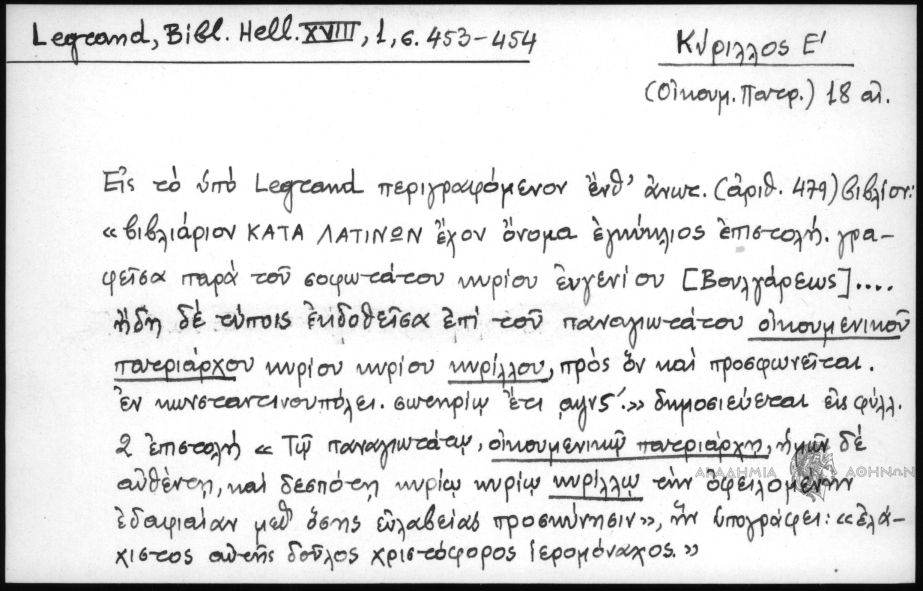 Legrand, Bibl. Hell. XVIII, 1, σ. 453-454
Κύριλλος Ε'
(Οἰκουμ. Πατρ.) 18 αἰ.
Εἰς τὸ ὑπὸ Legrand περιγραφόμενον ἔνθ' ἀνωτ. (ἀριθ. 479) βιβλίον:
«βιβλιάριον ΚΑΤΑ ΛΑΤΙΝΩΝ ἔχον ὄνομα ἐγκύκλιος ἐπιστολή. γρα-
φεῖσα παρὰ τοῦ σοφωτάτου κυρίου ἐυγενίου [Βουλγάρεως]....
ἤδη δὲ τύποις ἐκδοθεῖσα ἐπὶ τοῦ παναγιωτάτου οἰκουμενικοῦ
πατριάρχου κυρίου κυρίου κυρίλλου, πρὸς ὃν καὶ προσφωνεῖται.
ἐν κωνσταντινουπόλει. σωτηρίῳ ἔτει αψνϛ΄.» δημοσιεύεται εἰς φύλλ.
2 ἐπιστολὴ «Τῷ παναγιωτάτῳ, οἰκουμενικῷ πατριάρχῃ, ἡμῶν δὲ
αὐθέντῃ, καὶ δεσπότῃ κυρίῳ κυρίῳ κυρίλλῳ τὴν ὀφειλομένην
ἐδαφιαίαν μεθ' ὅσης εὐλαβείας προσκύνησιν», ἣν ὑπογράφει: «ἐλά-
χιστος αὐτῆς δοῦλος χριστόφορος ἱερομόναχος.»
ΑΚΑΔΗΜΙΑ ΑΘΗΝΩΝ